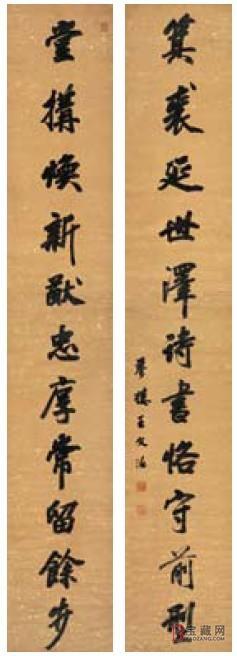 箕裘延世澤詩書恪守前型
夢樓王文治
堂搆煥新猷忠厚常留餘步
宝藏网